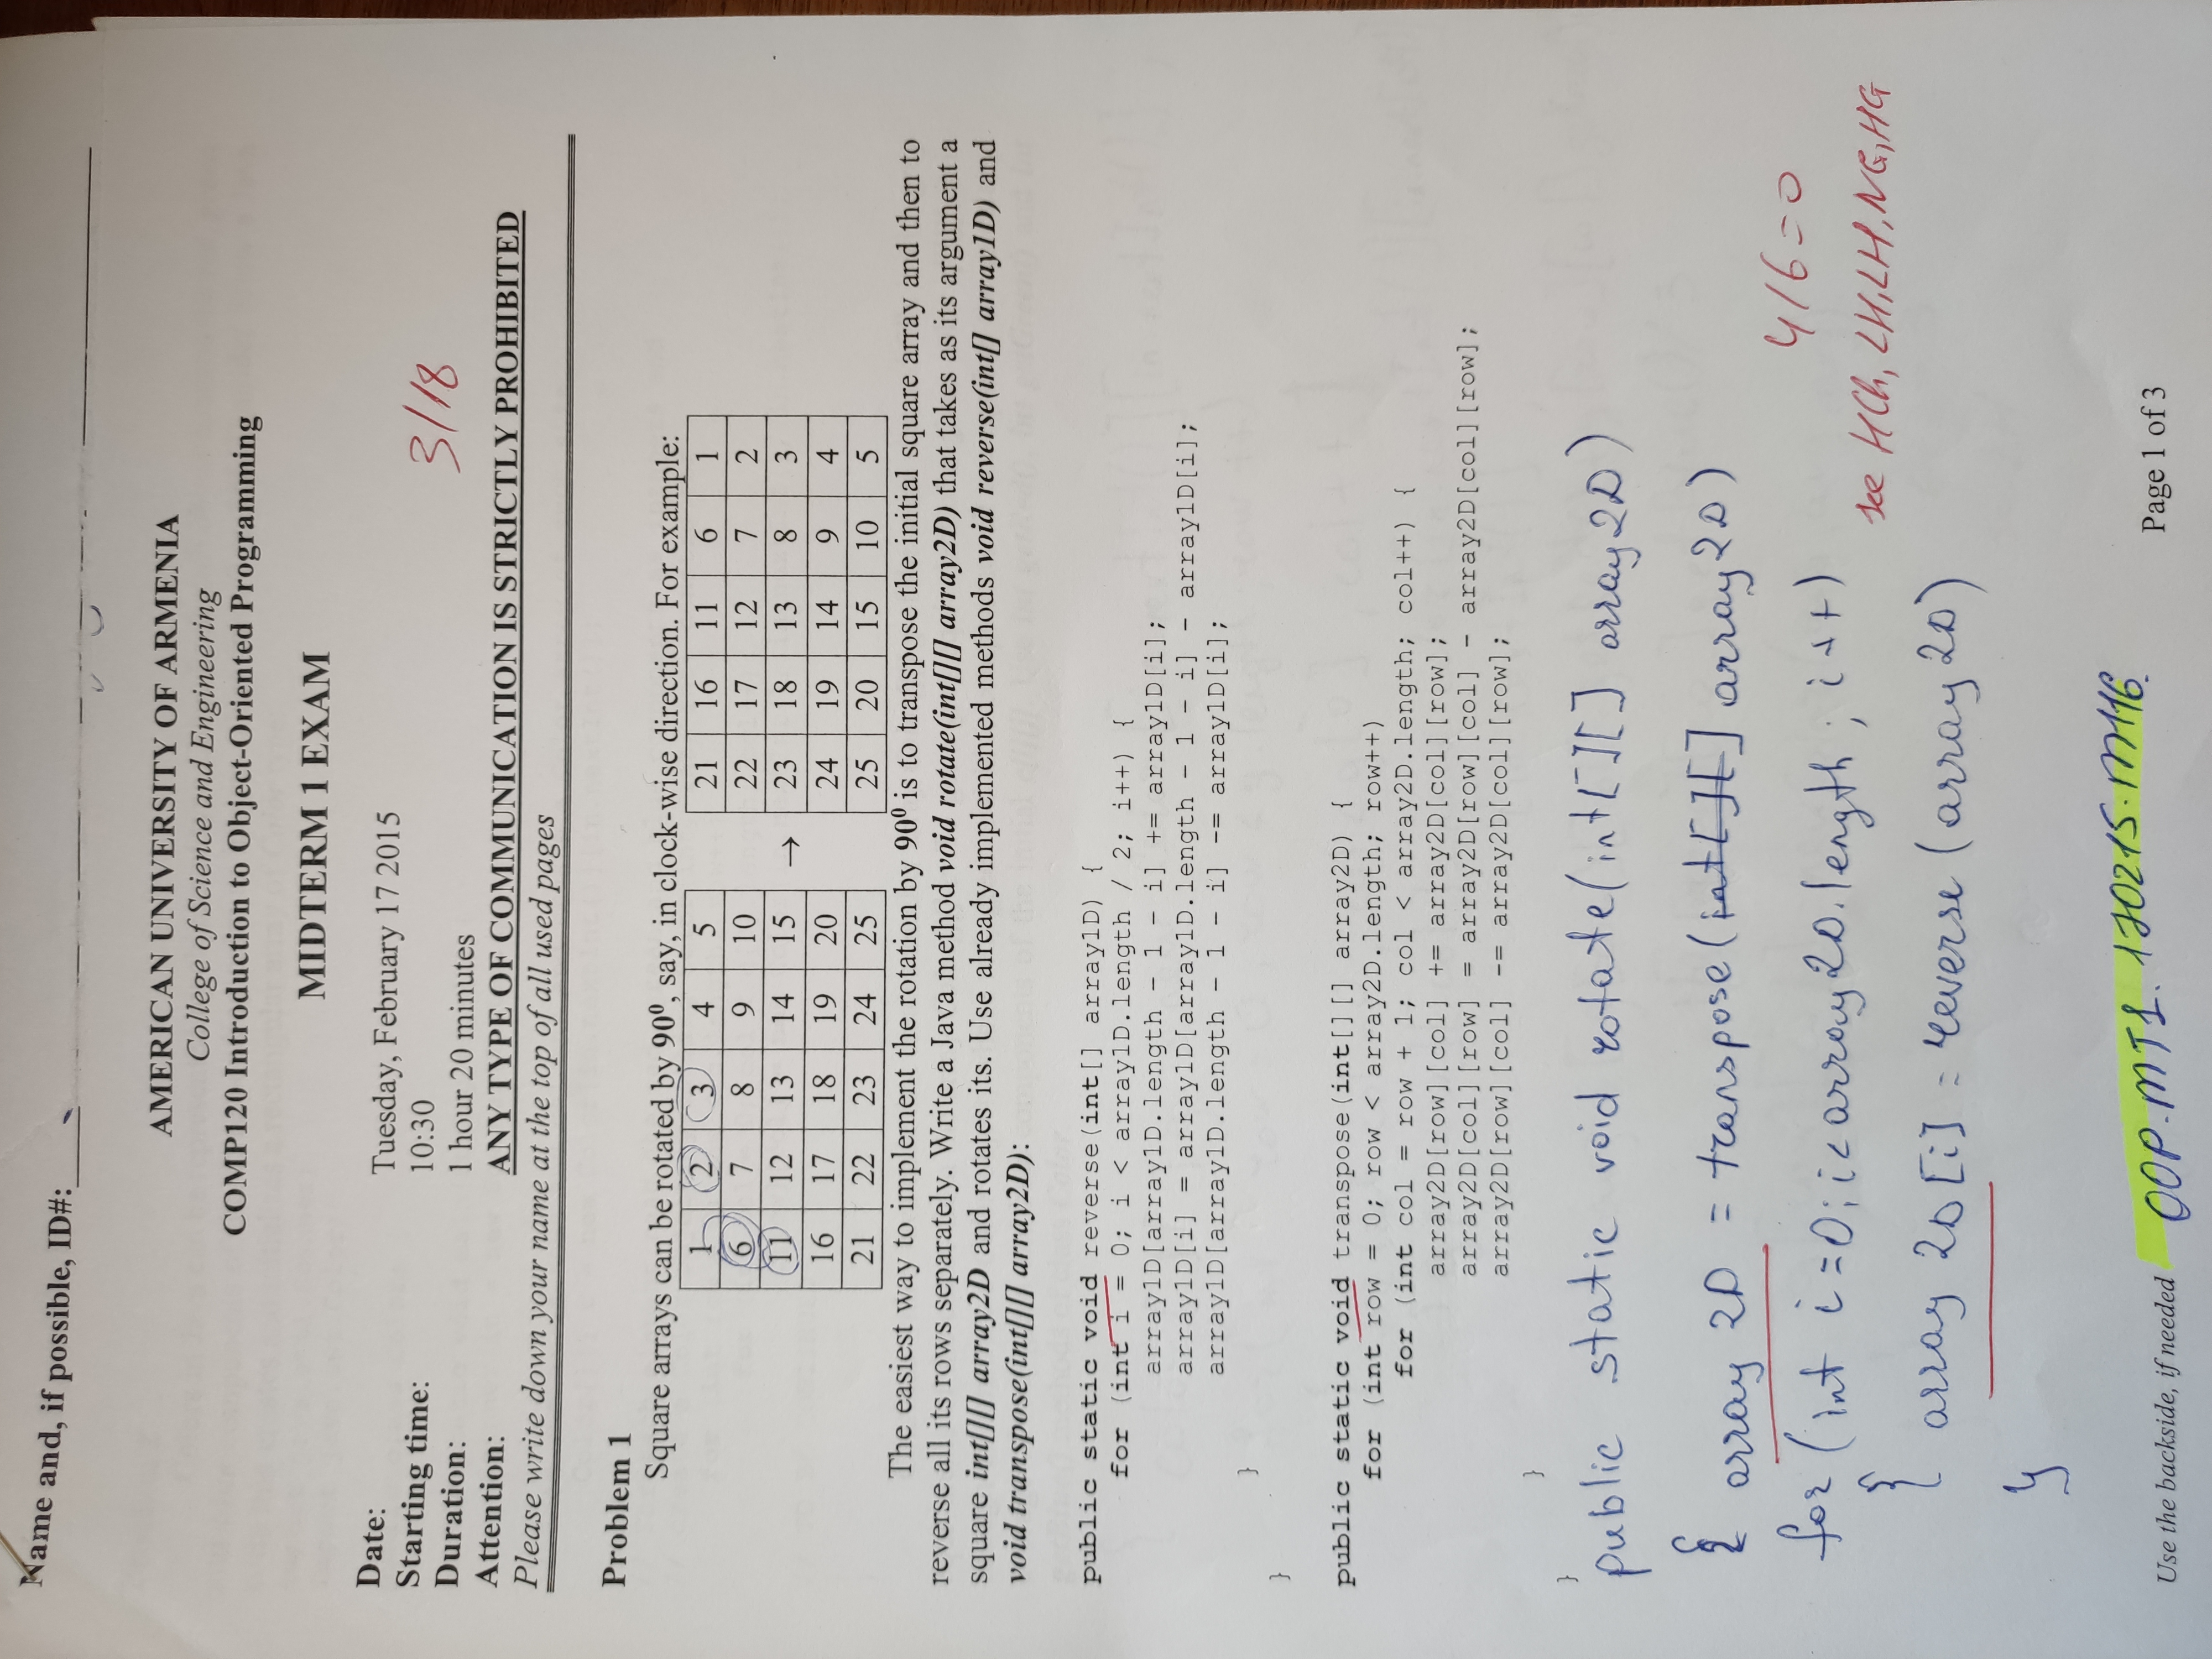 Name and, if possible, ID#:
AMERICAN UNIVERSITY OF ARMENIA
College of Science and Engineering
COMP120 Introduction to Object-Oriented Programming
MIDTERM 1 EXAM
Date: Tuesday, February 17 2015
Starting time: 10:30
3/18
Duration: 1 hour 20 minutes
Attention: ANY TYPE OF COMMUNICATION IS STRICTLY PROHIBITED
Please write down your name at the top of all used pages
Problem 1
Square arrays can be rotated by 90⁰, say, in clock-wise direction. For example:
1 2 3 4 5 21 16 11 6 1
6 7 8 9 10 22 17 12 7 2
11 12 13 14 15 → 23 18 13 8 3
16 17 18 19 20 24 19 14 9 4
21 22 23 24 25 25 20 15 10 5
The easiest way to implement the rotation by 90⁰ is to transpose the initial square array and then to
reverse all its rows separately. Write a Java method void rotate(int[][] array2D) that takes as its argument a
square int[][] array2D and rotates its. Use already implemented methods void reverse(int[] array1D) and
void transpose(int[][] array2D):
public static void reverse(int[] array1D) {
for (int i = 0; i < array1D.length / 2; i++) {
array1D[array1D.length - 1 - i] += array1D[i];
array1D[i] = array1D[array1D.length - 1 - i] - array1D[i];
array1D[array1D.length - 1 - i] -= array1D[i];
}
}
public static void transpose(int[][] array2D) {
for (int row = 0; row < array2D.length; row++)
for (int col = row + 1; col < array2D.length; col++) {
array2D[row][col] += array2D[col][row];
array2D[col][row] = array2D[row][col] - array2D[col][row];
array2D[row][col] -= array2D[col][row];
}
}
public static void rotate(int[][] array2D)
{ array 2D = transpose(int[][] array2D)
for (int i=0; i<array2D.length; i++)
4/6=0
see HCh, LH, LH, NG, HG
{ array 2D[i] = reverse (array2D)
}
OOP.MT1.170215.M116.
Use the backside, if needed
Page 1 of 3